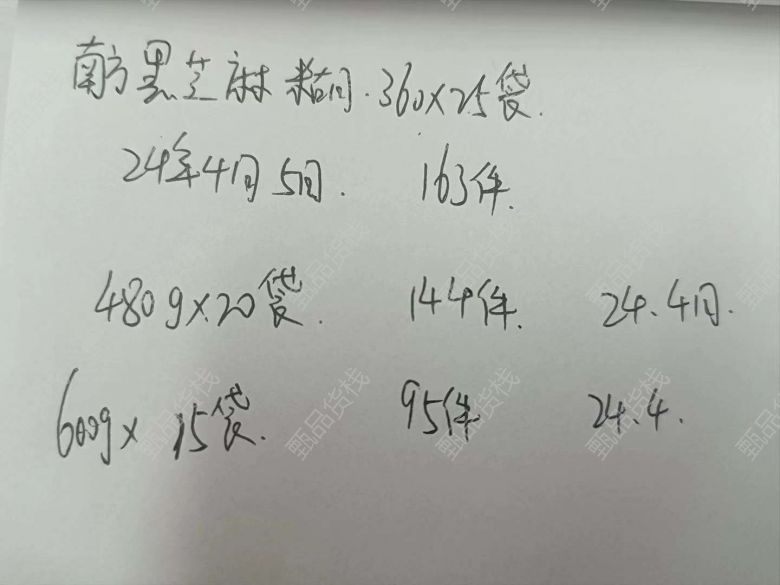 南方黑芝麻糊.360×25袋.
24年4月5月. 163件.
480g×20袋. 144件. 24.4月.
600g×15袋. 95件 24.4.
甄品货栈